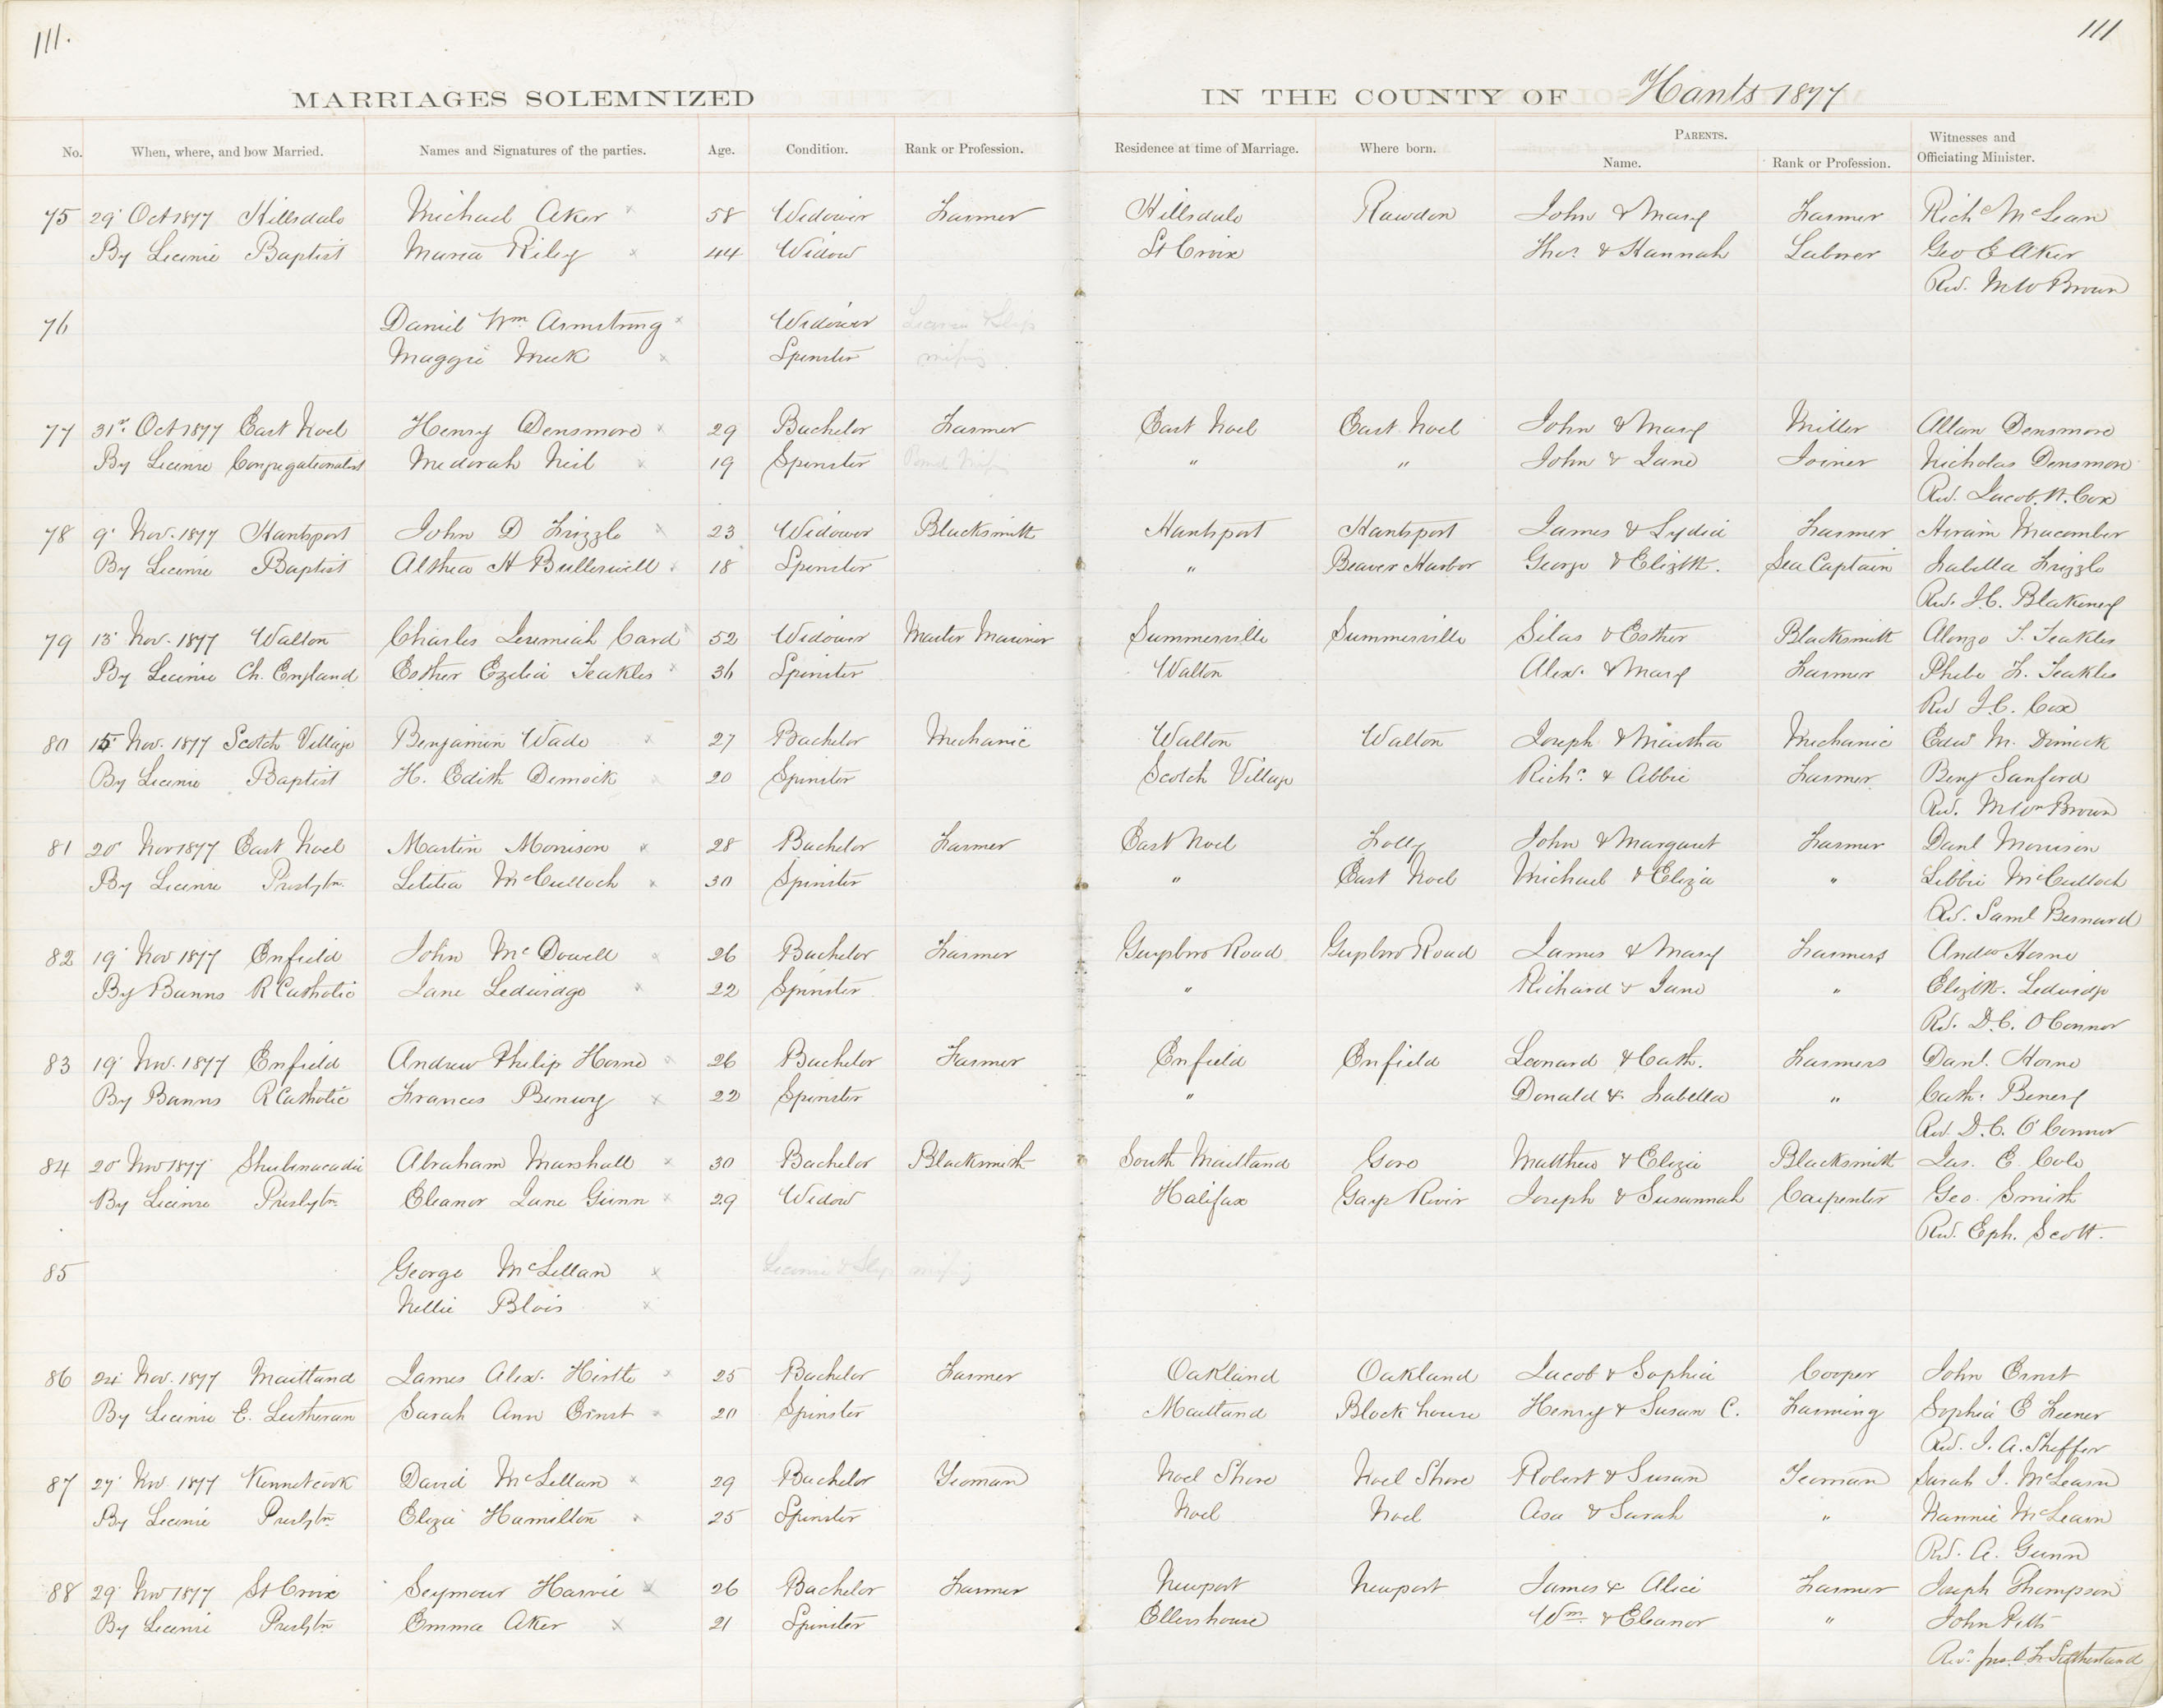 111. 111
MARRIAGES SOLEMNIZED IN THE COUNTY OF Hants 1877
No. When, where, and how Married. Names and Signatures of the parties. Age. Condition. Rank or Profession. Residence at time of Marriage. Where born. PARENTS. Name. Rank or Profession. Witnesses and Officiating Minister.
75 29 Oct 1877 Hillsdale Michael Aker x 58 Widower Farmer Hillsdale Rawdon John & Mary Farmer Richd McLean
By License Baptist Maria Riley x 44 Widow St Croix Thos & Hannah Laborer Geo E Aker
Rev. M W Brown
76 Daniel Wm Armstrong x Widower License & Slip
Maggie Meek x Spinster missing
77 31st Oct 1877 East Noel Henry Densmore x 29 Bachelor Farmer East Noel East Noel John & Mary Miller Allan Densmore
By License Congregationalist Medorah Neil x 19 Spinster " " John & Jane Joiner Nicholas Densmore
Rev. Jacob W. Cox
78 9 Nov. 1877 Hantsport John D Frizzle x 23 Widower Blacksmith Hantsport Hantsport James & Lydia Farmer Hiram Macomber
By License Baptist Althea H Bullerwell x 18 Spinster " Beaver Harbor George & Elizth. Sea Captain Isabella Frizzle
Rev. J.C. Blakeney
79 13 Nov. 1877 Walton Charles Jeremiah Card x 52 Widower Master Mariner Summerville Summerville Silas & Esther Blacksmith Alonzo T. Teakles
By License Ch. England Esther Ezelia Teakles x 36 Spinster Walton Alex. & Mary Farmer Phebe F. Teakles
Rev J.C. Cox
80 15 Nov. 1877 Scotch Village Benjamin Wade x 27 Bachelor Mechanic Walton Walton Joseph & Martha Mechanic Edw M. Dimock
By License Baptist H. Edith Dimock x 20 Spinster Scotch Village Richd & Abbie Farmer Benj Sanford
Rev. M Wm Brown
81 20 Nov 1877 East Noel Martin Morrison x 28 Bachelor Farmer East Noel Folly John & Margaret Farmer Danl Morrison
By License Presbytn Letitia McCulloch x 30 Spinster " East Noel Michael & Eliza " Libbie McCulloch
Rev. Saml Bernard
82 19 Nov 1877 Enfield John McDowell x 26 Bachelor Farmer Guysboro Road Guysboro Road James & Mary Farmers Andw Horne
By Banns R Catholic Jane Ledwidge x 22 Spinster " Richard & Jane " Elizth. Ledwidge
Rev. D.C. O'Connor
83 19 Nov. 1877 Enfield Andrew Philip Horne x 26 Bachelor Farmer Enfield Enfield Leonard & Cath. Farmers Danl. Horne
By Banns R Catholic Frances Benwy x 22 Spinster " Donald & Isabella " Cath. Benery
Rev. D.C. O'Connor
84 20 Nov 1877 Shubenacadie Abraham Marshall x 30 Bachelor Blacksmith South Maitland Gore Matthew & Eliza Blacksmith Jas. E. Cole
By License Presbytn Eleanor Jane Gunn x 29 Widow Halifax Gays River Joseph & Susannah Carpenter Geo. Smith
Rev. Eph. Scott.
85 George McLellan x License & Slip missing
Nellie Blois x
86 24 Nov. 1877 Maitland James Alex. Hirtle x 25 Bachelor Farmer Oakland Oakland Jacob & Sophia Cooper John Ernst
By License E. Lutheran Sarah Ann Ernst x 20 Spinster Maitland Block house Henry & Susan C. Farming Sophia E Feener
Rev. J. A. Sheffer
87 27 Nov 1877 Kennetcook David McLellan x 29 Bachelor Yeoman Noel Shore Noel Shore Robert & Susan Yeoman Sarah J. McLearn
By License Presbytn Eliza Hamilton x 25 Spinster Noel Noel Asa & Sarah " Nannie McLearn
Rev. A. Gunn
88 29 Nov 1877 St Croix Seymour Harvie x 26 Bachelor Farmer Newport Newport James & Alice Farmer Joseph Thompson
By License Presbytn Emma Aker x 21 Spinster Ellershouse Wm & Eleanor " John Pitts
Rev. Sutherland